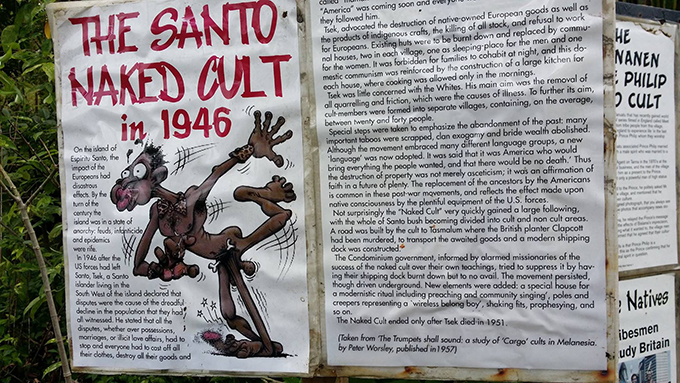 THE SANTO
NAKED CULT
in 1946
On the island of
Espiritu Santo, the
impact of the
Europeans had
disastrous
effects. By the
turn of the
century the
island was in a state of
anarchy: feuds, infanticide
and epidemics
were rife.
In 1946 after the
US forces had left
Santo, Tsek, a Santo
islander living in the
South West of the island declared that
disputes were the cause of the dreadful
decline in the population that they had
all witnessed. He stated that all the
disputes, whether over possessions,
marriages, or illicit love affairs, had to
stop and everyone had to cast off all
their clothes, destroy all their goods and
"America" was coming soon and everyone
they followed him.
Tsek, advocated the destruction of native-owned European goods as well as
the products of indigenous crafts, the killing of all stock, and refusal to work
for Europeans. Existing huts were to be burnt down and replaced by commu-
nal houses, two in each village, one as sleeping-place for the men and one
for the women. It was forbidden for families to cohabit at night, and this do-
mestic communism was reinforced by the construction of a large kitchen for
each house, where cooking was allowed only in the mornings.
Tsek was little concerned with the Whites. His main aim was the removal of
all quarrelling and friction, which were the causes of illness. To further its aim,
cult-members were formed into separate villages, containing, on the average,
between twenty and forty people.
Special steps were taken to emphasize the abandonment of the past: many
important taboos were scrapped, clan exogamy and bride wealth abolished.
Although the movement embraced many different language groups, a new
'language' was now adopted. It was said that it was America who would
bring everything the people wanted, and that there would be no death.' Thus
the destruction of property was not merely asceticism; it was an affirmation of
faith in a future of plenty. The replacement of the ancestors by the Americans
is common in these post-war movements, and reflects the effect made upon
native consciousness by the plentiful equipment of the U.S. forces.
Not surprisingly the "Naked Cult" very quickly gained a large following,
with the whole of Santo bush becoming divided into cult and non cult areas.
A road was built by the cult to Tasmalum where the British planter Clapcott
had been murdered, to transport the awaited goods and a modern shipping
dock was constructed.
The Condominium government, informed by alarmed missionaries of the
success of the naked cult over their own teachings, tried to suppress it by hav-
ing their shipping dock burnt down but to no avail. The movement persisted
though driven underground. New elements were added: a special house for
a modernistic ritual including preaching and community singing', poles and
creepers representing a 'wireless belong boy', shaking fits, prophesying, and
so on.
The Naked Cult ended only after Tsek died in 1951.
[Taken from 'The Trumpets shall sound: a study of 'Cargo' cults in Melanesia.
by Peter Worsley, published in1957]
THE
NANEN
E PHILIP
O CULT
Natives
ibesmen
udy Britain